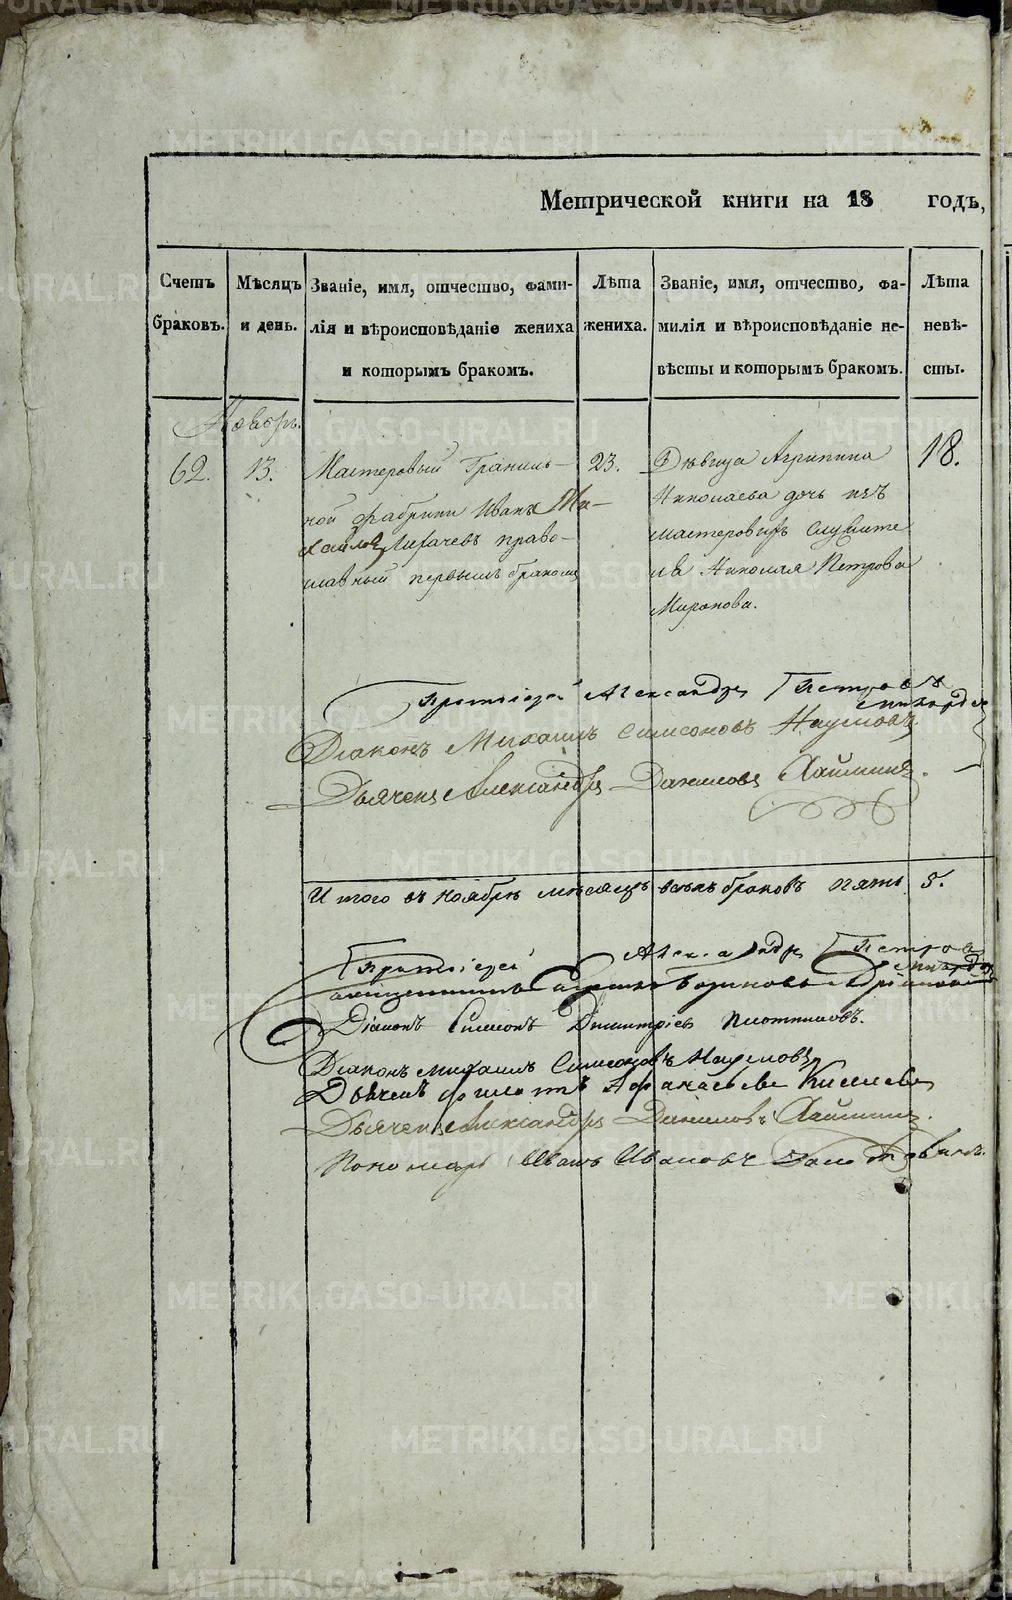 METRIKI.GASO-URAL.RU
Метрической книги на 18 годъ,
Счетъ браковъ.
Мѣсяцъ и день.
Званіе, имя, отчество, фами-
лія и вѣроисповѣданіе жениха
и которымъ бракомъ.
Лѣта
жениха.
Званіе, имя, отчество, фа-
милія и вѣроисповѣданіе не-
вѣсты и которымъ бракомъ.
Лѣта
невѣ-
сты.
Ноябрь.
62.
13.
Мастеровый Граниль-
ной фабрики Иванъ Ми-
хайловъ Лихачевъ право-
славный первымъ бракомъ
23.
Дѣвица Агрипина
Николаева дочь изъ
мастеровыхъ служите
ля Николая Петрова
Миронова.
18.
Протоіерей Александръ Петровъ
Діаконъ Михаилъ Симеоновъ Наумовъ
Дьячекъ Александръ Даниловъ Хайминъ.
И того въ ноябрѣ мѣсяцѣ всѣхъ браковъ пять 5.
Протоіерей Александръ Петровъ
Діаконъ Симеонъ Димитріевъ Плотниковъ.
Діаконъ Михаилъ Симеоновъ Наумовъ
Дьячекъ Филатъ Афанасьевъ Киселевъ
Дьячекъ Александръ Даниловъ Хайминъ.
Пономарь Иванъ Ивановъ